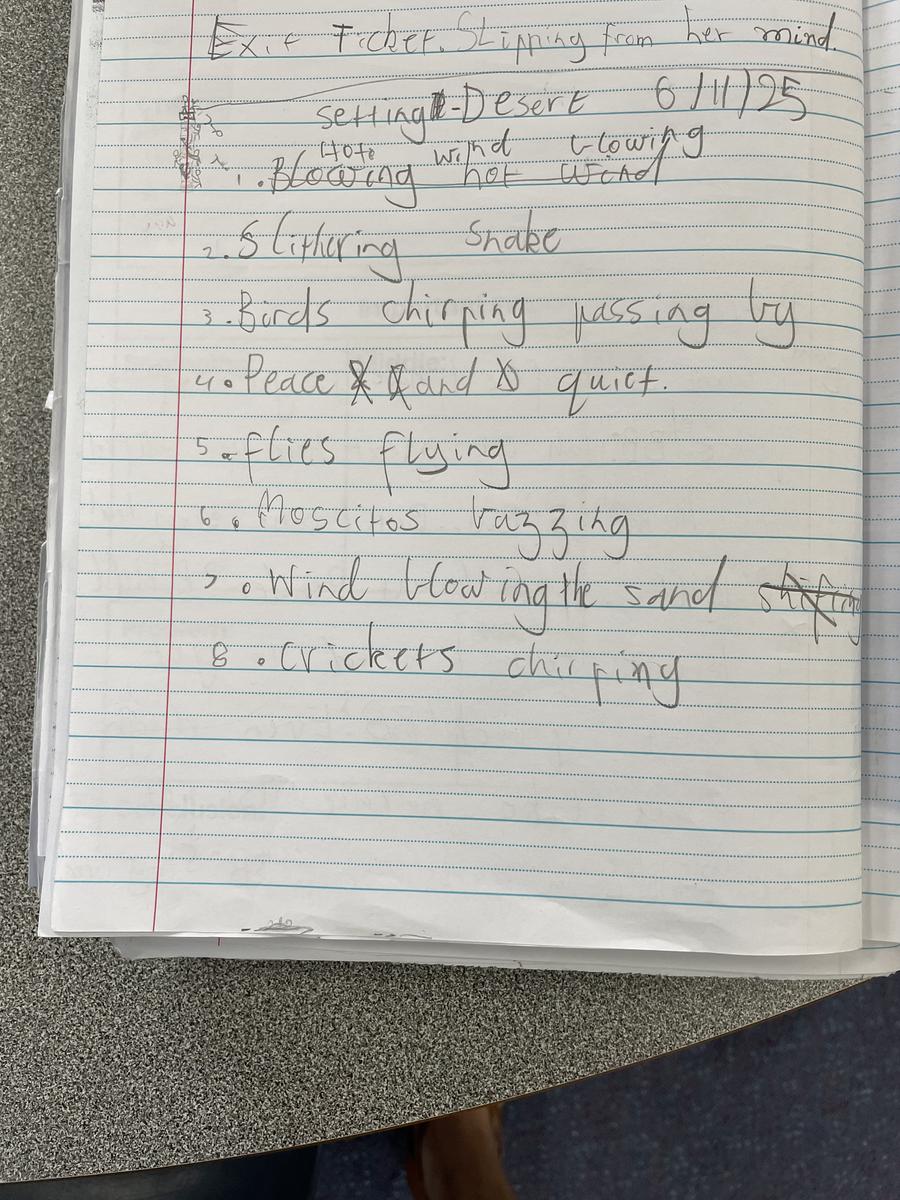 Exit Ticket. Slipping from her mind.
setting - Desert 6/11/25
Hot wind blowing
1. Blowing hot wind
2. Slithering Snake
3. Birds chirping passing by
4. Peace and quiet.
5. flies flying
6. Moscitos buzzing
7. Wind blowing the sand
8. Crickets chirping